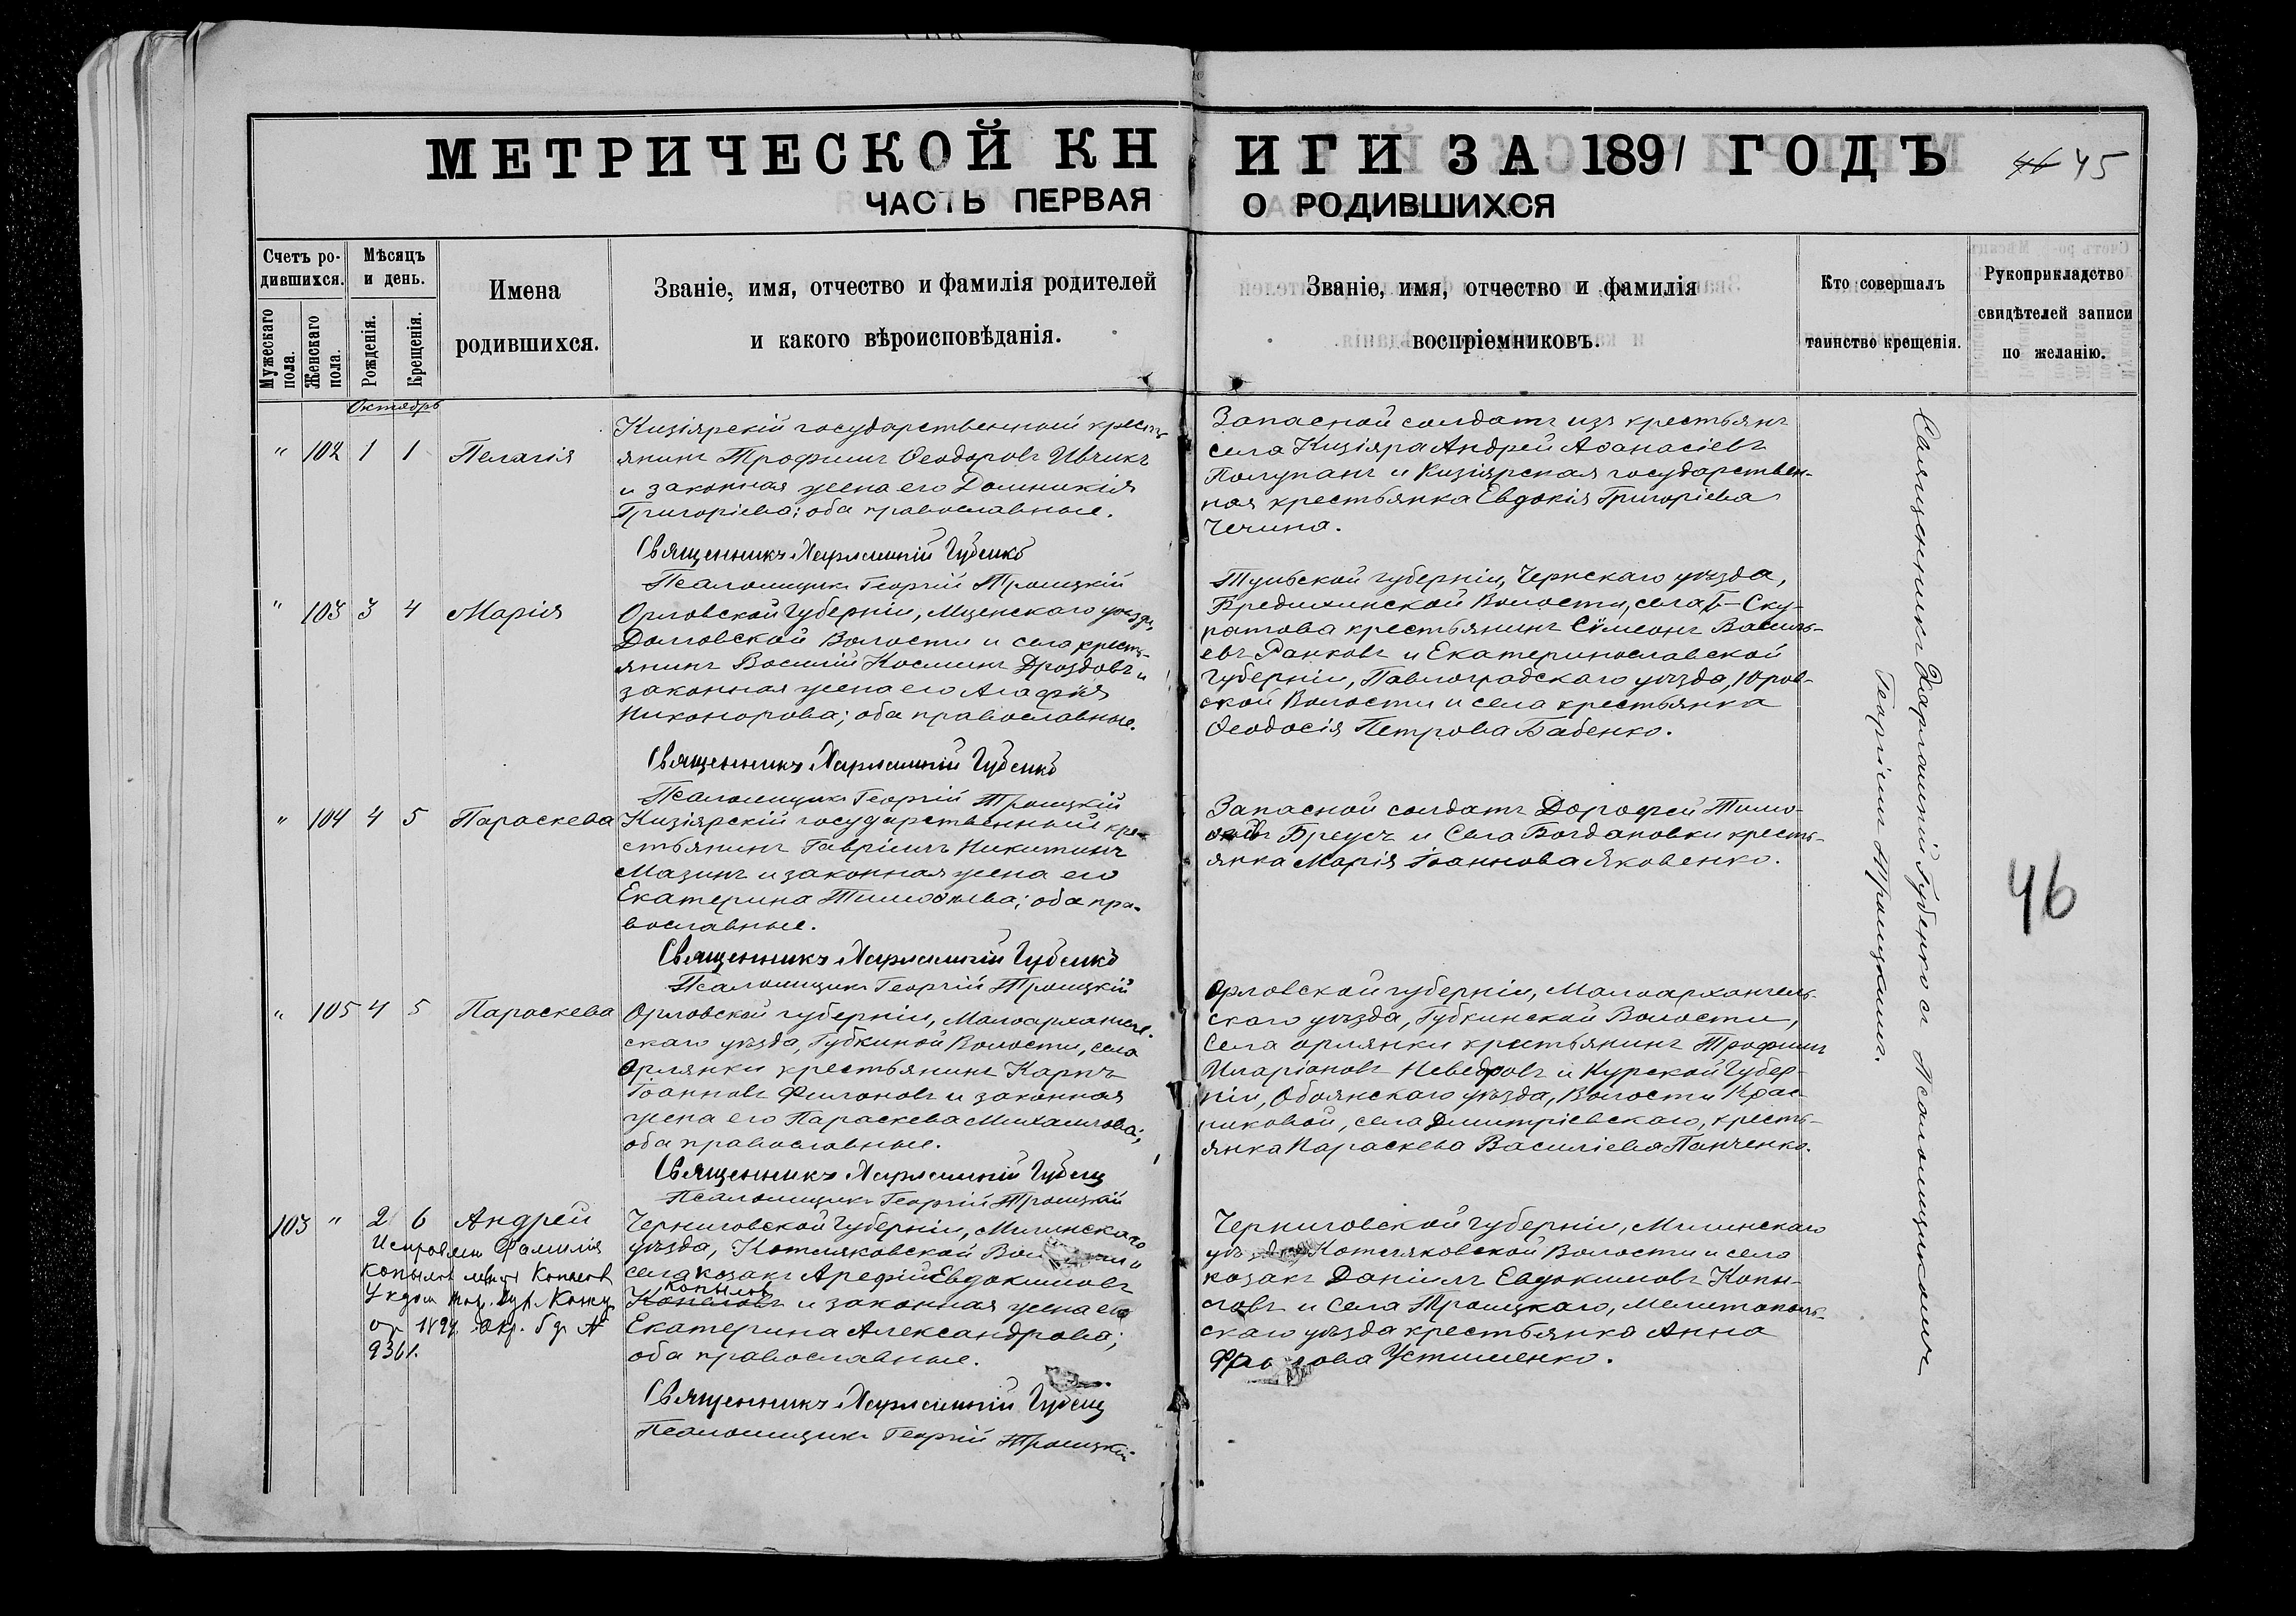 МЕТРИЧЕСКОЙ КНИГИ ЗА 1891 ГОДЪ
46 45
ЧАСТЬ ПЕРВАЯ О РОДИВШИХСЯ
Счетъ ро-
дившихся.
Мужескаго пола.
Женскаго пола.
Мѣсяцъ
и день.
Рожденія.
Крещенія.
Имена
родившихся.
Званіе, имя, отчество и фамилія родителей
и какого вѣроисповѣданія.
Званіе, имя, отчество и фамилія
воспріемниковъ.
Кто совершалъ
таинство крещенія.
Рукоприкладство
свидѣтелей записи
по желанію.
Октябрь
" 102 1 1 Пелагія
Кизіярскій государственный кресть
янинъ Трофимъ Ѳеодоровъ Ивчикъ
и законная жена его Домникія
Григоріева; оба православные.
Священникъ Харлампій Губенко
Псаломщикъ Георгій Троицкій
Запасной солдатъ изъ крестьянъ
села Кизіяра Андрей Аѳанасіевъ
Полупанъ и Кизіярская государствен-
ная крестьянка Евдокія Григоріева
Чечина.
" 103 3 4 Марія
Орловской Губерніи, Мценскаго уѣзда,
Долговской Волости и села кресть-
янинъ Василій Косминъ Дроздовъ и
законная жена его Агафія
Никонорова; оба православные.
Священникъ Харлампій Губенко
Псаломщикъ Георгій Троицкій
Тульской губерніи, Чернскаго уѣзда,
Бредихинской Волости, села Б-Ску-
ратова крестьянинъ Сѵмеонъ Василь-
евъ Ранковъ и Екатеринославской
Губерніи, Павлоградскаго уѣзда, Юров-
ской Волости и села крестьянка
Ѳеодосія Петрова Бабенко.
" 104 4 5 Параскева
Кизіярскій государственный кре-
стьянинъ Гавріилъ Никитинъ
Мазинъ и законная жена его
Екатерина Тимоѳѣева; оба пра-
вославные.
Священникъ Харлампій Губенко
Псаломщикъ Георгій Троицкій
Запасной солдатъ Дорофей Тимо-
Бреусъ и Села Богдановки кресть-
янка Марія Іоаннова Яковенко.
" 105 4 5 Параскева
Орловской губерніи, Малоархангель-
скаго уѣзда, Губкиной Волости, села
Орлянки крестьянинъ Карпъ
Іоанновъ Филоновъ и законная
жена его Параскева Михаилова;
оба православные.
Священникъ Харлампій Губенко
Псаломщикъ Георгій Троицкій
Орловской губерніи, Малоархангель-
скаго уѣзда, Губкинской Волости,
Села Орлянки крестьянинъ Трофимъ
Иларіоновъ Неведровъ и Курской Губер-
ніи, Обоянскаго уѣзда, Волости Крас-
никовой, села Дмитріевскаго, кресть-
янка Параскева Василіева Панченко.
103 " 2 6 Андрей
Исправлен Фамилія
Копылов Копаев
Указ Кон
1894 Окр. 5 дн №
9361.
Черниговской Губерніи, Мглинскаго
уѣзда, Котляковской Волости и
села козакъ Арефій Евдокимовъ
Копылов
и законная жена его
Екатерина Александрова;
оба православные.
Священникъ Харлампій Губенко
Псаломщикъ Георгій Троицкій
Черниговской губерніи, Мглинскаго
Котляковской Волости и села
козакъ Даніилъ Евдокимовъ Копы-
ловъ и Села Троицкаго, Мелитополь-
скаго уѣзда крестьянка Анна
Устименко.
Священникъ Харлампій Губенко съ Псаломщикомъ
Георгіемъ Троицкимъ.
46